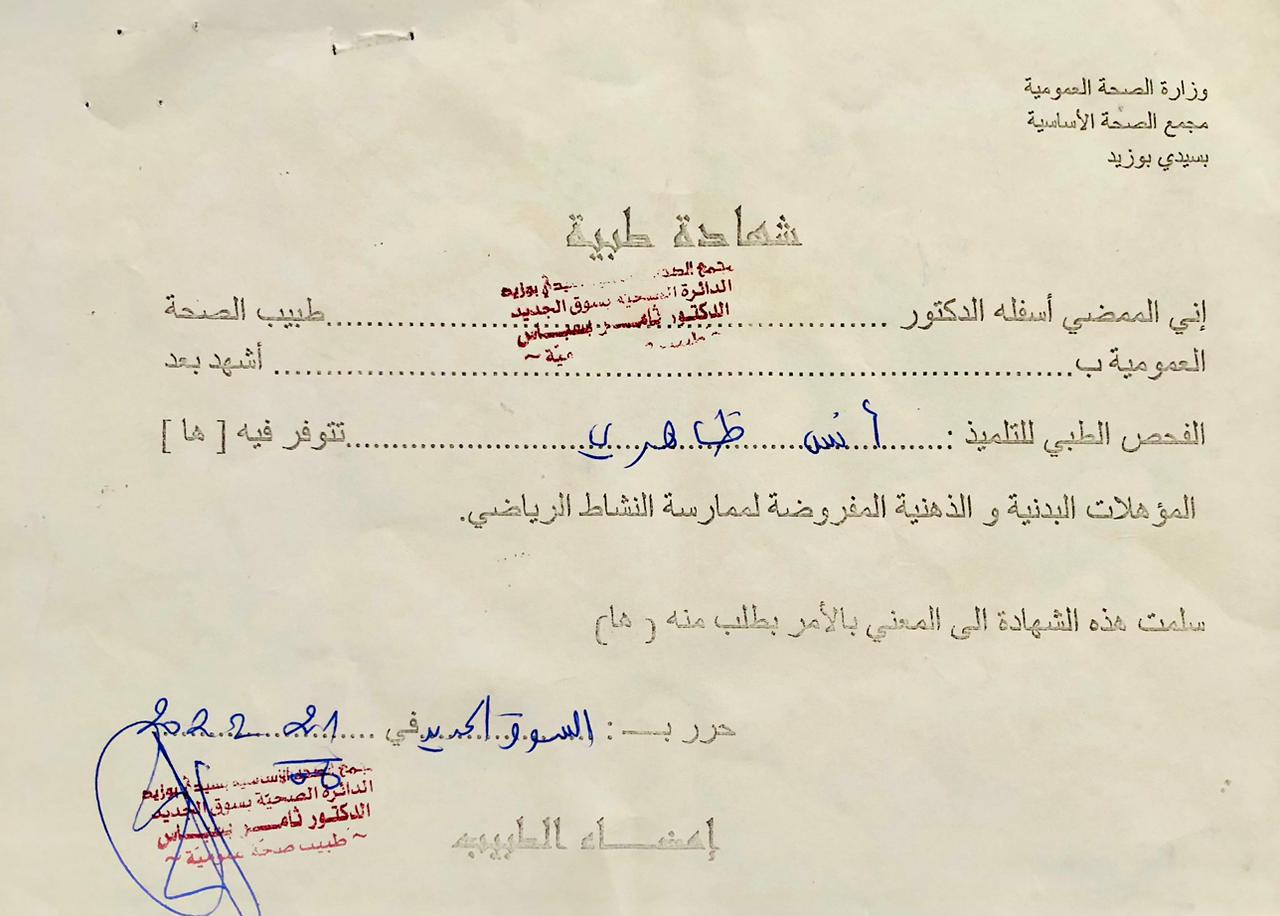 وزارة الصحة العمومية
مجمع الصحة الأساسية
بسيدي بوزيد
شهادة طبية
مجمع الصحة سيدي بوزيد
الدائرة الصحية بسوق الجديد
الدكتور ثامر
طبيب
إني الممضي أسفله الدكتور ........................................ طبيب الصحة
العمومية ب........................................ أشهد بعد
الفحص الطبي للتلميذ : ...... أنس طاهري ...... تتوفر فيه [ ها ]
المؤهلات البدنية و الذهنية المفروضة لممارسة النشاط الرياضي.
سلمت هذه الشهادة الى المعني بالأمر بطلب منه ( ها)
حرر بـــ : السوق الجديد في .... 2022
مجمع الصحة الأساسية بسيدي بوزيد
الدائرة الصحية بسوق الجديد
الدكتور ثامر
~ طبيب صحة عمومية ~
إمضــاء الطبيب